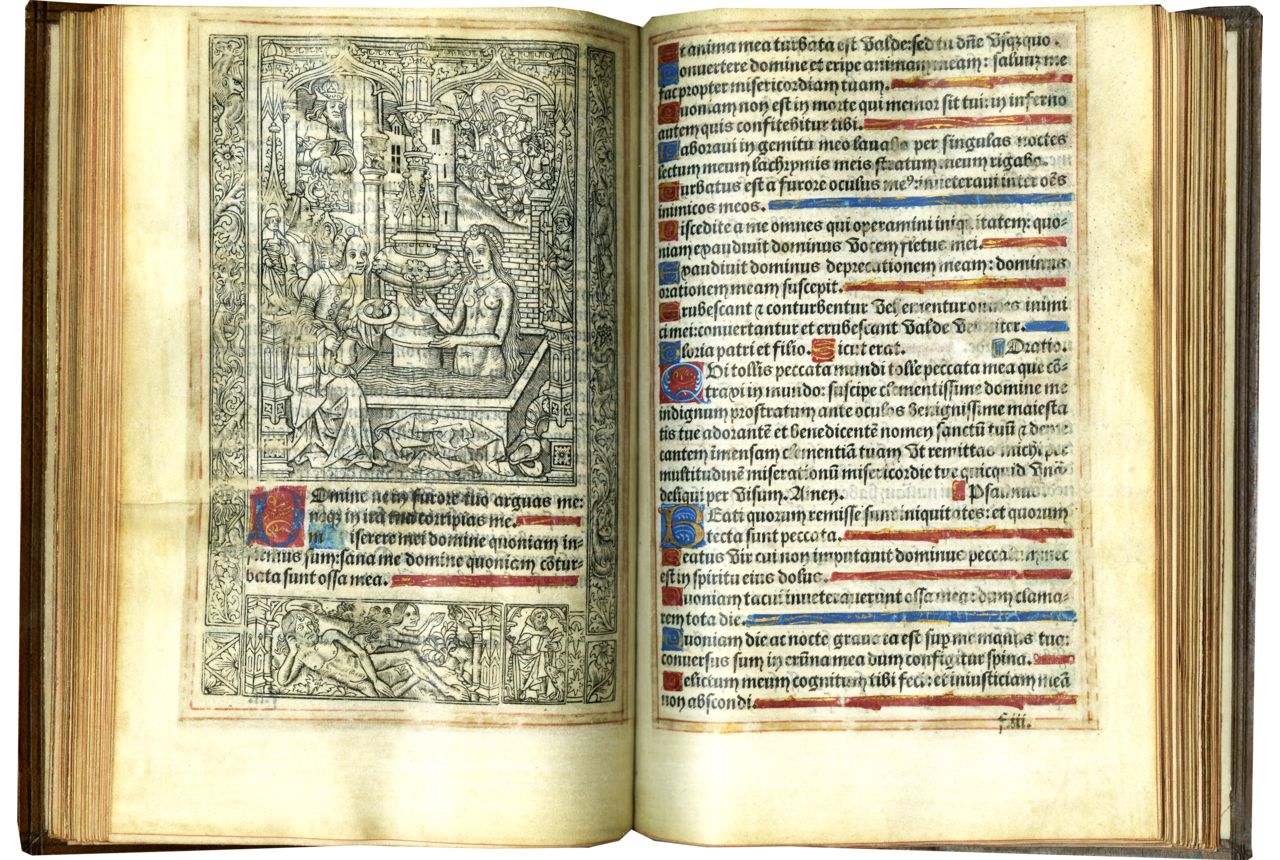 Omine ne in furore tuo arguas me:
neqz in ira tua corripias me.
miserere mei domine quoniam in-
firmus sum: sana me domine quoniam cōtur-
bata sunt ossa mea.
Et anima mea turbata est valde: sed tu dñe vsqzquo.
Conuertere domine et eripe animam meam: saluū me
fac propter misericordiam tuam.
Quoniam non est in morte qui memor sit tui: in inferno
autem quis confitebitur tibi.
Laboraui in gemitu meo lauabo per singulas noctes
lectum meum lachrymis meis stratum meum rigabo.
Turbatus est a furore oculus me⁹: inueteraui inter oēs
inimicos meos.
Discedite a me omnes qui operamini iniquitatem: quo-
niam exaudiuit dominus vocem fletus mei.
Exaudiuit dominus deprecationem meam: dominus
orationem meam suscepit.
Erubescant ⁊ conturbentur vehementer omnes inimi
ci mei: conuertantur et erubescant valde velociter.
Gloria patri et filio. Sicut erat. Oratio.
QVi tollis peccata mundi tolle peccata mea que cō-
traxi in mundo: suscipe clementissime domine me
indignum prostratum ante oculos benignissime maiesta
tis tue adorantē et benedicentē nomen sanctū tuū ⁊ depre
cantem īmensam clementiā tuam vt remittas michi per
multitudinē miserationū misericordie tue quicquid vnq̄
deliqui per visum. Amen. Psalmus
BEati quorum remisse sunt iniquitates: et quorum
tecta sunt peccata.
Beatus vir cui non imputauit dominus peccatum nec
est in spiritu eius dolus.
Quoniam tacui inueterauerunt ossa mea: dum clama-
rem tota die.
Quoniam die ac nocte grauata est sup me manus tua:
conuersus sum in erūna mea dum configitur spina.
Delictum meum cognitum tibi feci: et iniusticiam meā
non abscondi.
f.iii.